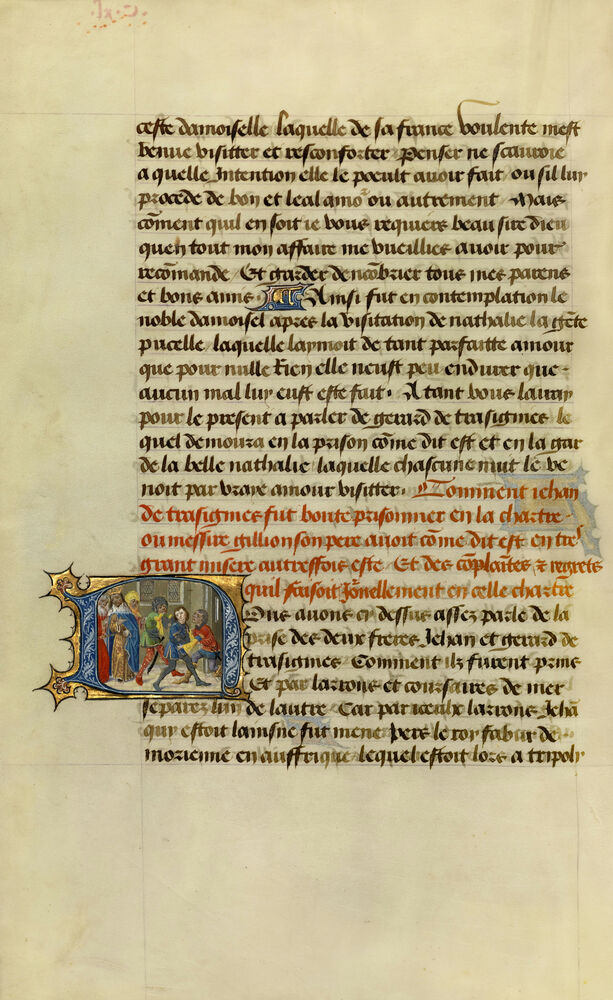 ceste damoiselle laquelle de sa france voulente mest
venue visitter et resconforter Penser ne scauroie
a quelle Intention elle le poeult auoir fait ou sil luy
procede de bon et leal amor ou autrement Mais
cōment quil en soit ie vous requiers beau sire dieu
quen tout mon affaire me vueillies auoir pour
recōmande Et garder dencōbrier tous mes parens
et bons amis Ainsi fut en contemplation le
noble damoisel apres la visitation de nathalie la gēte
pucelle laquelle laymoit de tant parfaitte amour
que pour nulle Rien elle neust peu endurer que
aucun mal luy eust este fait. Atant vous lairay
pour le present a parler de gerard de trasignies le
quel demoura en la prison cōme dit est et en la gar
de la belle nathalie laquelle chascune nuit le ve
noit par vraye amour visitter. Comment iehan
de trasignies fut boute prisonnier en la chartre
ou messire gillion son pere auoit cōme dit est en tres
grant misere autreffois este Et des cōplaītes & regrets
quil faisoit Jōnellement en celle chartre
Ous auons cy dessus assez parle de la
prise des deux freres Jehan et gerard de
trasignies Comment ilz furent prins
Et par larrons et coursaires de mer
separez lun de lautre Car par iceulx larrons Jehā
quy estoit laisne fut mene vers le roy fabur de
morienne en auffrique lequel estoit lors a tripoly